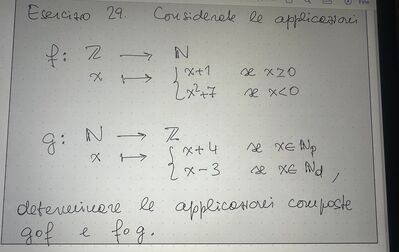 Esercizio 29. Considerate le applicazioni
f: ℤ ⟶ ℕ
x ⟼ { x+1 se x≥0
x²+7 se x<0
g: ℕ ⟶ ℤ
x ⟼ { x+4 se x∈ℕp
x-3 se x∈ℕd,
determinare le applicazioni composte
gof e fog.